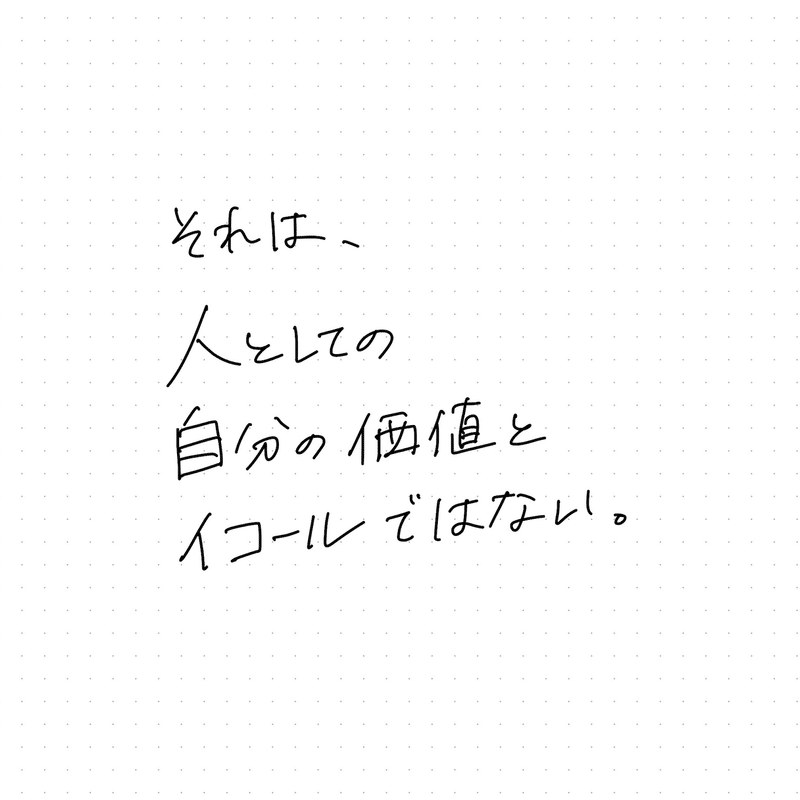 それは、
人としての
自分の価値と
イコールではない。